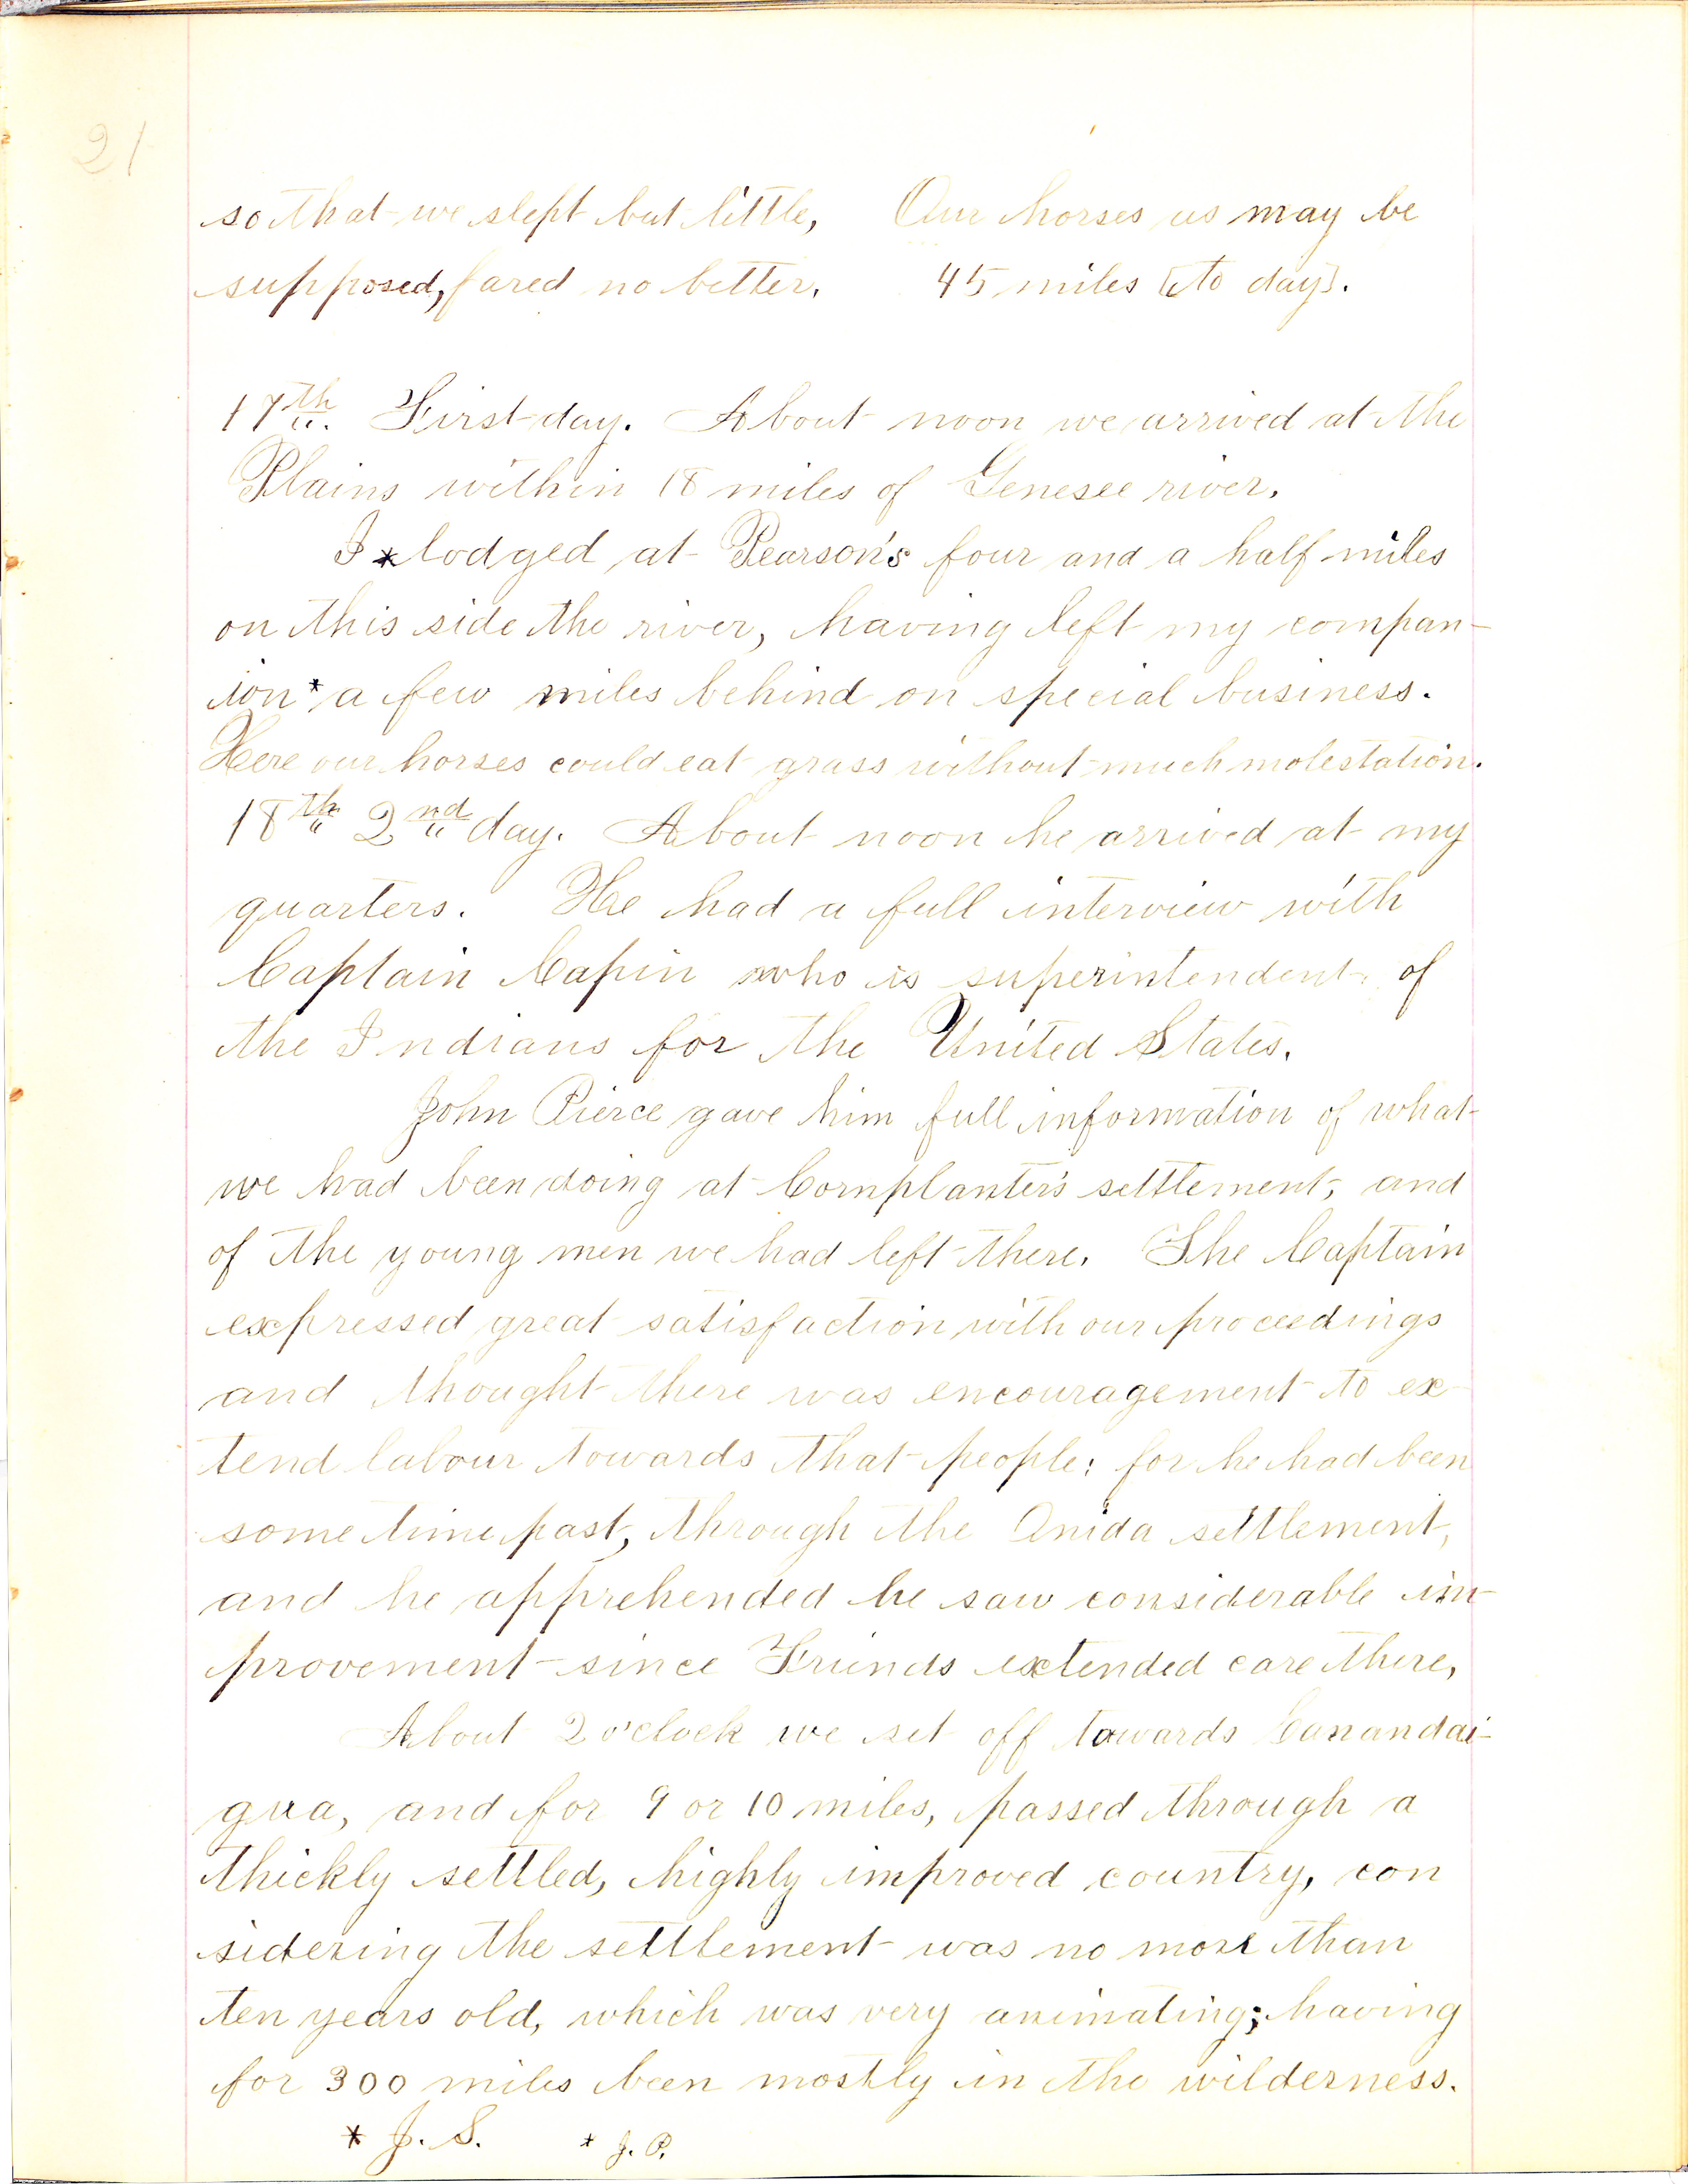 21
so that we slept but little, Our horses as may be
supposed, fared no better. 45 miles [to day].
17th. First day. About noon we arrived at the
Plains within 18 miles of Genesee river.
I * lodged at Pearson's four and a half miles
on this side the river, having left my compan-
ion * a few miles behind on special business.
Here our horses could eat grass without much molestation.
18th 2nd day. About noon he arrived at my
quarters. He had a full interview with
Captain Capin who is superintendent of
the Indians for the United States.
John Pierce gave him full information of what
we had been doing at Cornplanter's settlement, and
of the young men we had left there. The Captain
expressed great satisfaction with our proceedings
and thought there was encouragement to ex-
tend labour towards that people; for he had been
some time past, through the Onida settlement,
and he apprehended he saw considerable im-
provement since Friends extended care there,
About 2 o'clock we set off towards Canandai-
gua, and for 9 or 10 miles, passed through a
thickly settled, highly improved country, con
sidering the settlement was no more than
ten years old, which was very animating; having
for 300 miles been mostly in the wilderness.
* J. S. * J. P.